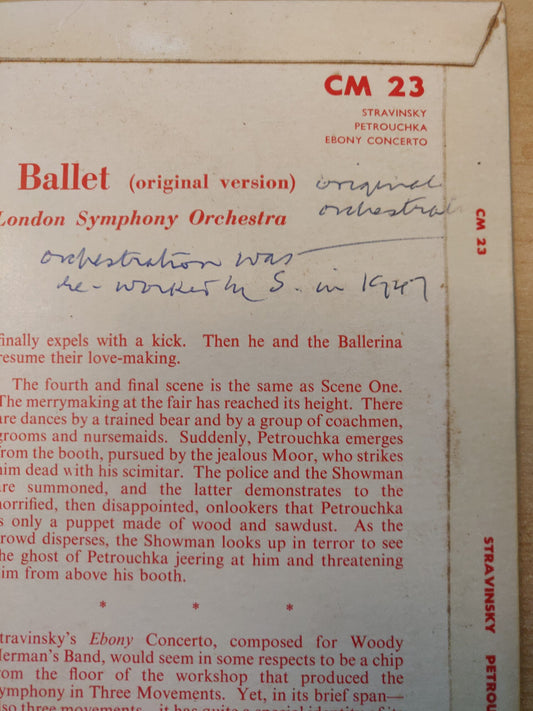 CM 23
STRAVINSKY
PETROUCHKA
EBONY CONCERTO
Ballet (original version) original
London Symphony Orchestra orchestral
orchestration was
re-worked by S. in 1947
CM 23
finally expels with a kick. Then he and the Ballerina
resume their love-making.
The fourth and final scene is the same as Scene One.
The merrymaking at the fair has reached its height. There
are dances by a trained bear and by a group of coachmen,
grooms and nursemaids. Suddenly, Petrouchka emerges
from the booth, pursued by the jealous Moor, who strikes
him dead with his scimitar. The police and the Showman
are summoned, and the latter demonstrates to the
horrified, then disappointed, onlookers that Petrouchka
is only a puppet made of wood and sawdust. As the
crowd disperses, the Showman looks up in terror to see
the ghost of Petrouchka jeering at him and threatening
him from above his booth.
* * *
Stravinsky's Ebony Concerto, composed for Woody
Herman's Band, would seem in some respects to be a chip
from the floor of the workshop that produced the
Symphony in Three Movements. Yet, in its brief span—
also three movements—it has quite a special identity of it
STRAVINSKY PETROU